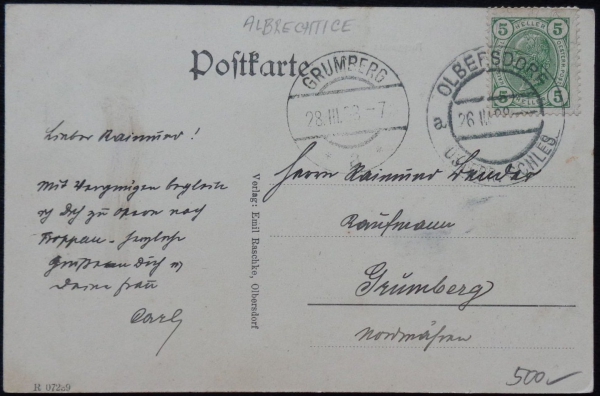 ALBRECHTICE
Postkarte
GRUMBERG
28.III. -7
a
OLBERSDORF
a 26.III
SCHLES
5 HELLER 5
5 5
Lieber Raimund!
Mit Vergnügen begleite
ich Dich zu nach
Troppau - herzliche
Grüße an Dich u
Deine Frau
Carl
Verlag: Emil Raschke, Olbersdorf
Herrn Raimund
Kaufmann
Grumberg
Nordmähren
500
R 07289